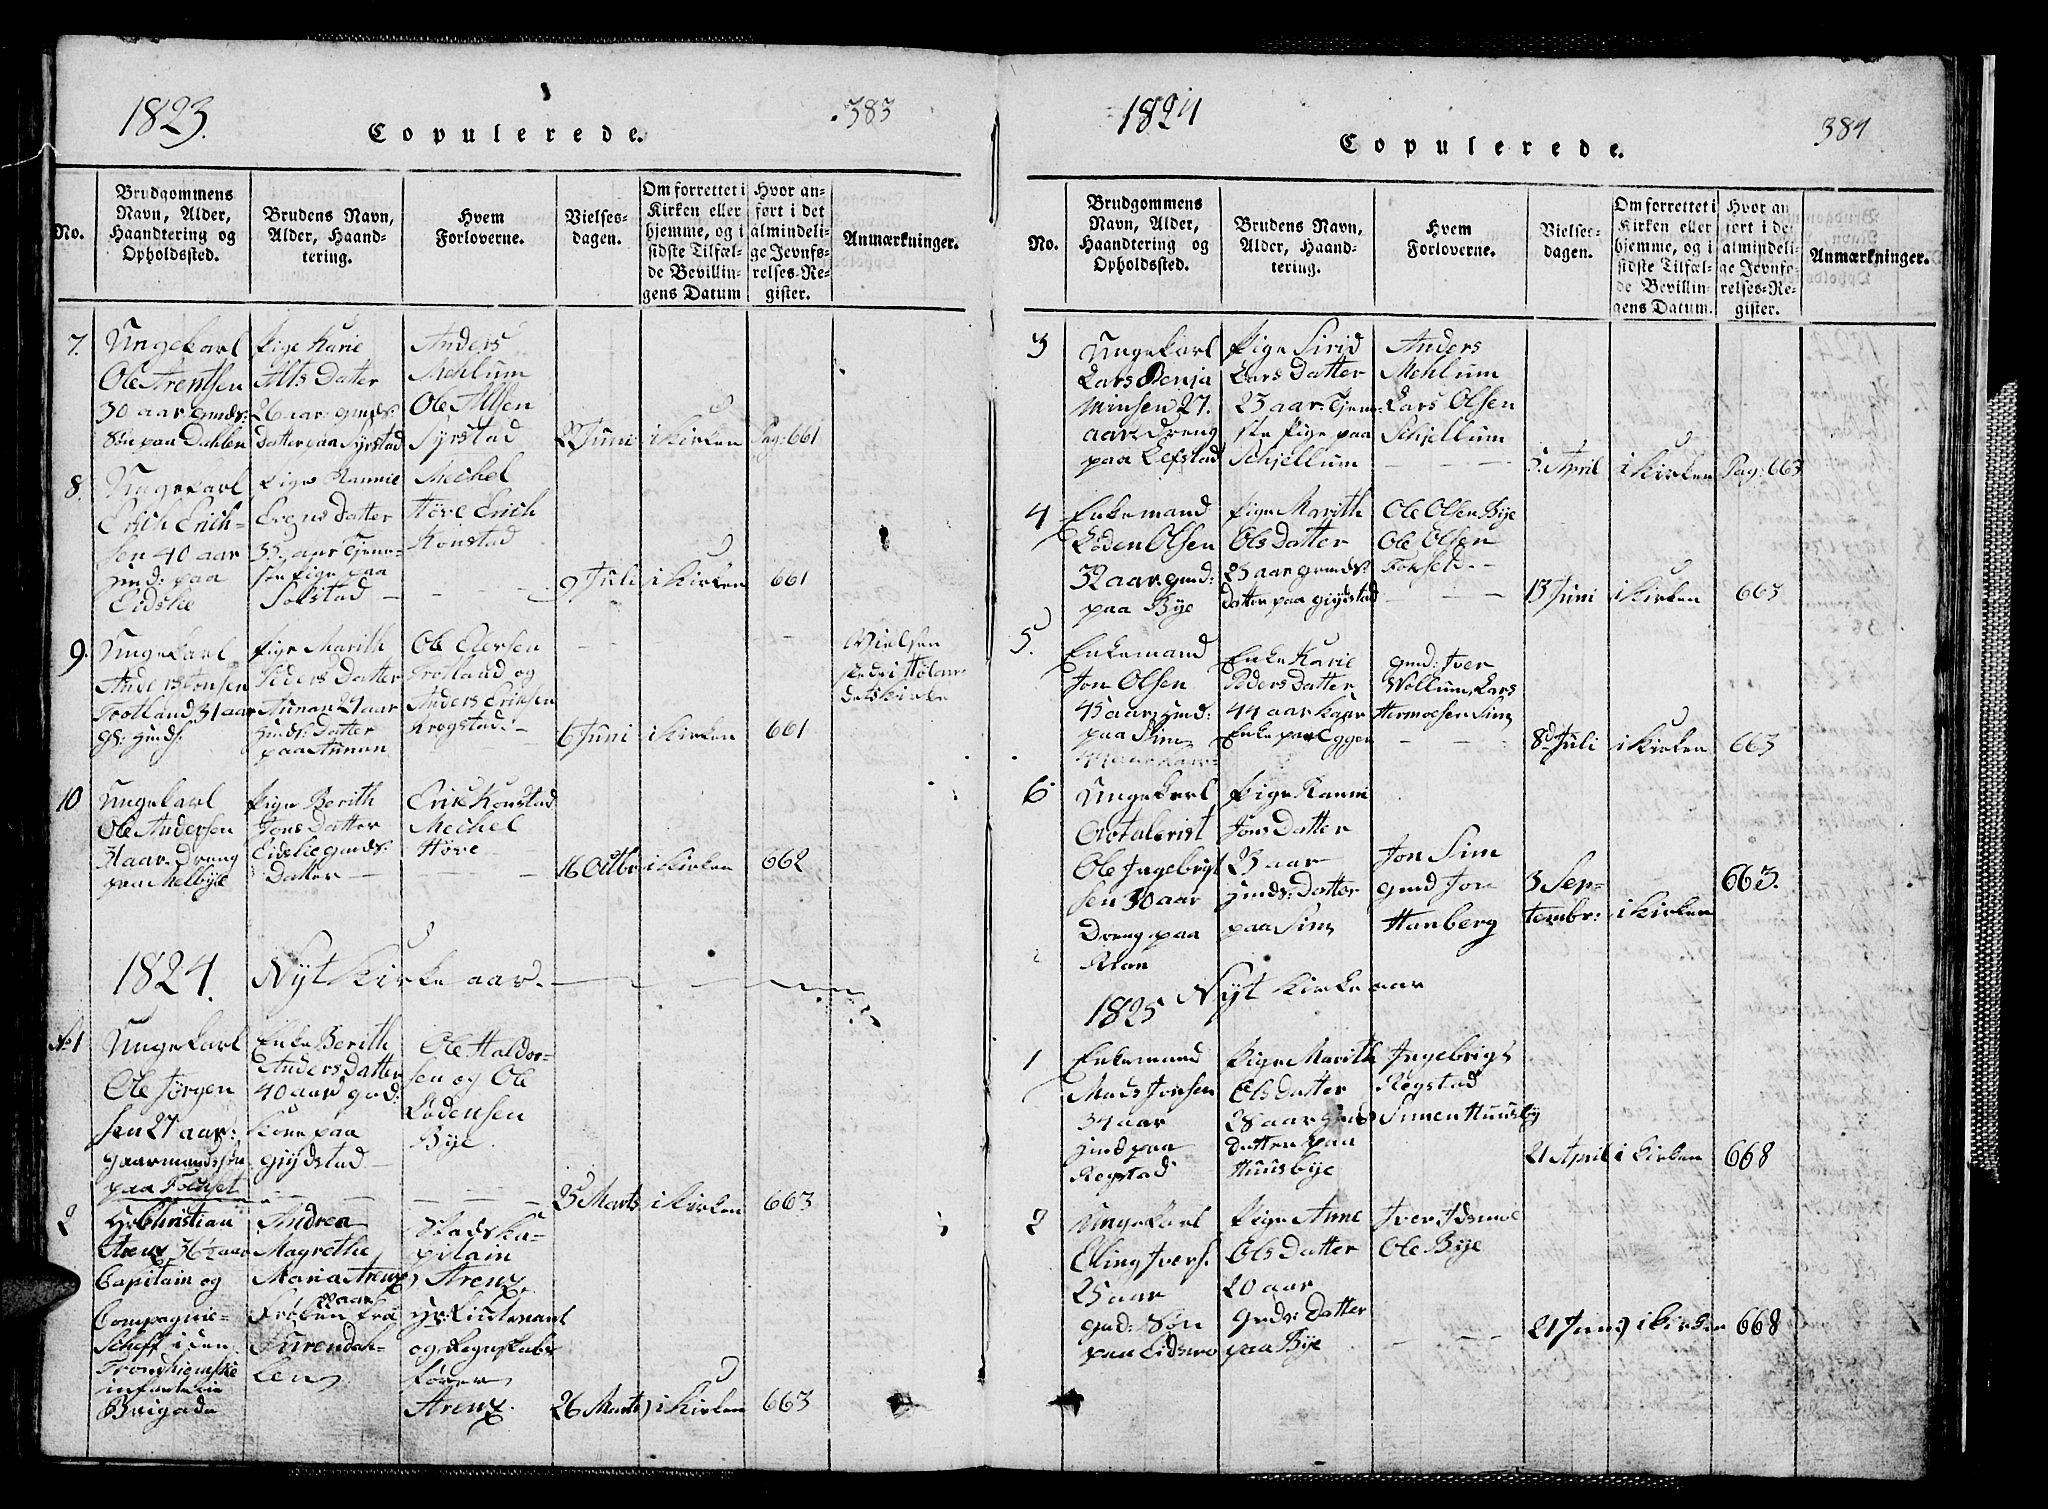 1823.
383
Copulerede.
No.
Brudgommens
Navn, Alder,
Haandtering og
Opholdssted.
Brudens Navn,
Alder, Haand-
tering.
Hvem
Forloverne.
Vielses-
dagen.
Om forrettet i
Kirken eller
hjemme, og i
sidste Tilfæl-
de Bevillin-
gens Datum
Hvor an-
ført i det
almindeli-
ge Jevnfø-
relses-Re-
gister.
Anmærkninger.
7.
Ungekarl
Ole Arentsen
30 aar gmds:
Søn paa Dahlen
Pige Karie
Alts Datter
26 aar gmds:
datter paa Syrstad
Anders
Mehlum
Ole Altsen
Syrstad
2 Juni
i Kirken
Pag: 661
8.
Ungekarl
Erich Erich-
sen 40 aar
gmd: paa
Eidslie
Pige Rannie
Erens Datter
33 aar Tjene-
ste Pige paa
Solstad
Mechel
Høve Erich
Konstad
9 Juli
i Kirken
661
9.
Ungekarl
Anders Jonsen
Trotland 31 aar
gl: gmds:
Pige Marith
Peders Datter
Aunan 24 aar
gmds: Datter
paa Aunan
Ole Edersen
Trotland og
Anders Eriksen
Krogstad
6 Juni
i Kirken
661
Vielsen
skede i Hølan-
dets Kirke
10
Ungekarl
Ole Andersen
31 aar Dreng
paa Melbye
Pige Berith
Jons Datter
Eidslie gmds:
Datter
Erik Konstad
Mechel
Høve
16 Octbr
i Kirken
662
1824.
Nyt Kirke aar.
No 1
Ungekarl
Ole Jørgen
sen 27 aar:
gaarmandssøn
paa Fouset
Enke Berith
Anders Datter
40 aar gmd:
Kone paa
Gridstad
Ole Haldor-
sen og Ole
Lodensen
Bye
25 Marts
i Kirken
663
2
Hr Christian
Arenz 36½ aar
Capitain og
Compagnie-
Scheff i den
Trondhiemske
infanterie
Brigade
Andrea
Magrethe
Maria Arenz
Frøken fra
Surendah-
len
Stadska-
pitain
Arenz
Hr: Lieutenant
og Regnskabs
fører
Arenz.
26 Marts
i Kirken
663
1824
384
Copulerede.
No.
Brudgommens
Navn, Alder,
Haandtering og
Opholdssted.
Brudens Navn,
Alder, Haand-
tering.
Hvem
Forloverne.
Vielses-
dagen.
Om forrettet i
Kirken eller
hjemme, og i
sidste Tilfæl-
de Bevillin-
gens Datum.
Hvor an
ført i det
almindeli-
ge Jevnfø-
relses-Re-
gister.
Anmærkninger.
3
Ungekarl
Lars Benja
minsen 27.
aar. Dreng
paa Lefstad
Pige Sirid
Lars Datter
23 aar. Tjene-
ste Pige paa
Schjellum
Anders
Mehlum
Lars Olsen
Schjellum
5 April
i Kirken
Pag: 663
4
Enkemand
Loden Olsen
32 aar. gmd:
paa Bye
Pige Marith
Ols Datter
23 aar gmds:
datter paa Gridstad
Ole Olsen Bye
Ole Olsen
13 Juni
i Kirken
663
5.
Enkemand
Jon Olsen
45 aar gmd:
paa Sim
Enke Karie
Peders Datter
44 aar Kaar
Enke paa Eggen
gmd: Iver
Wollum, Lars
Hermoesen Sim
8d Juli
i Kirken
663
6
Ungekarl
Ole Ingebrigt
sen 30 aar
Dreng paa
Pige Ranni
Jons Datter
23 aar
gmds: Datter
paa Sim
Jon Sim
gmd Jon
Hanberg
3 Sep-
tembr:
i Kirken
663.
1825 Nyt Kirke aar
1
Enkemand
Mads Jonsen
34 aar
gmd paa
Rogstad
Pige Marith
Ols Datter
28 aar gmds
datter paa
Huusbye
Ingebrigt
Rogstad
Simen Huusby
21 April
i Kirken
668
2
Ungekarl
Elling Ivers.
25 aar
gmd: Søn
paa Eidsmo
Pige Anne
Ols Datter
20 aar
Gmds: Datter
paa Bye
Iver Idsmoe
Ole Bye
21 Juni
i Kirken
668